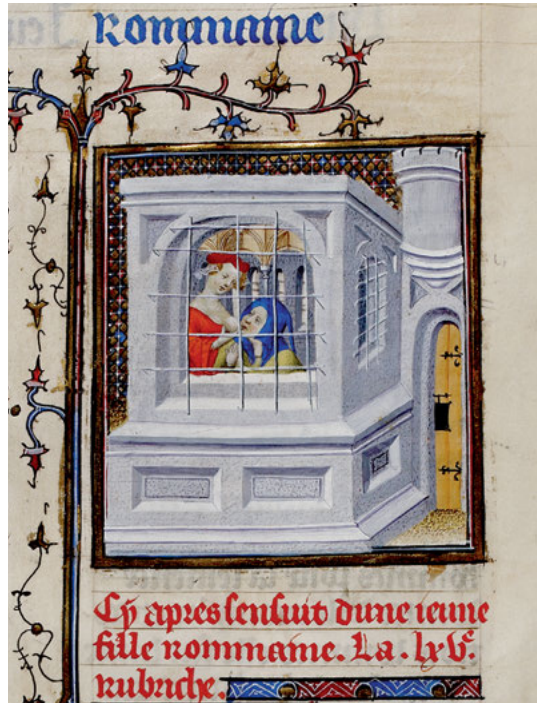 Rommaine
Cy apres sensuit dune ieune
fille rommaine. La .lxve.
rubriche.